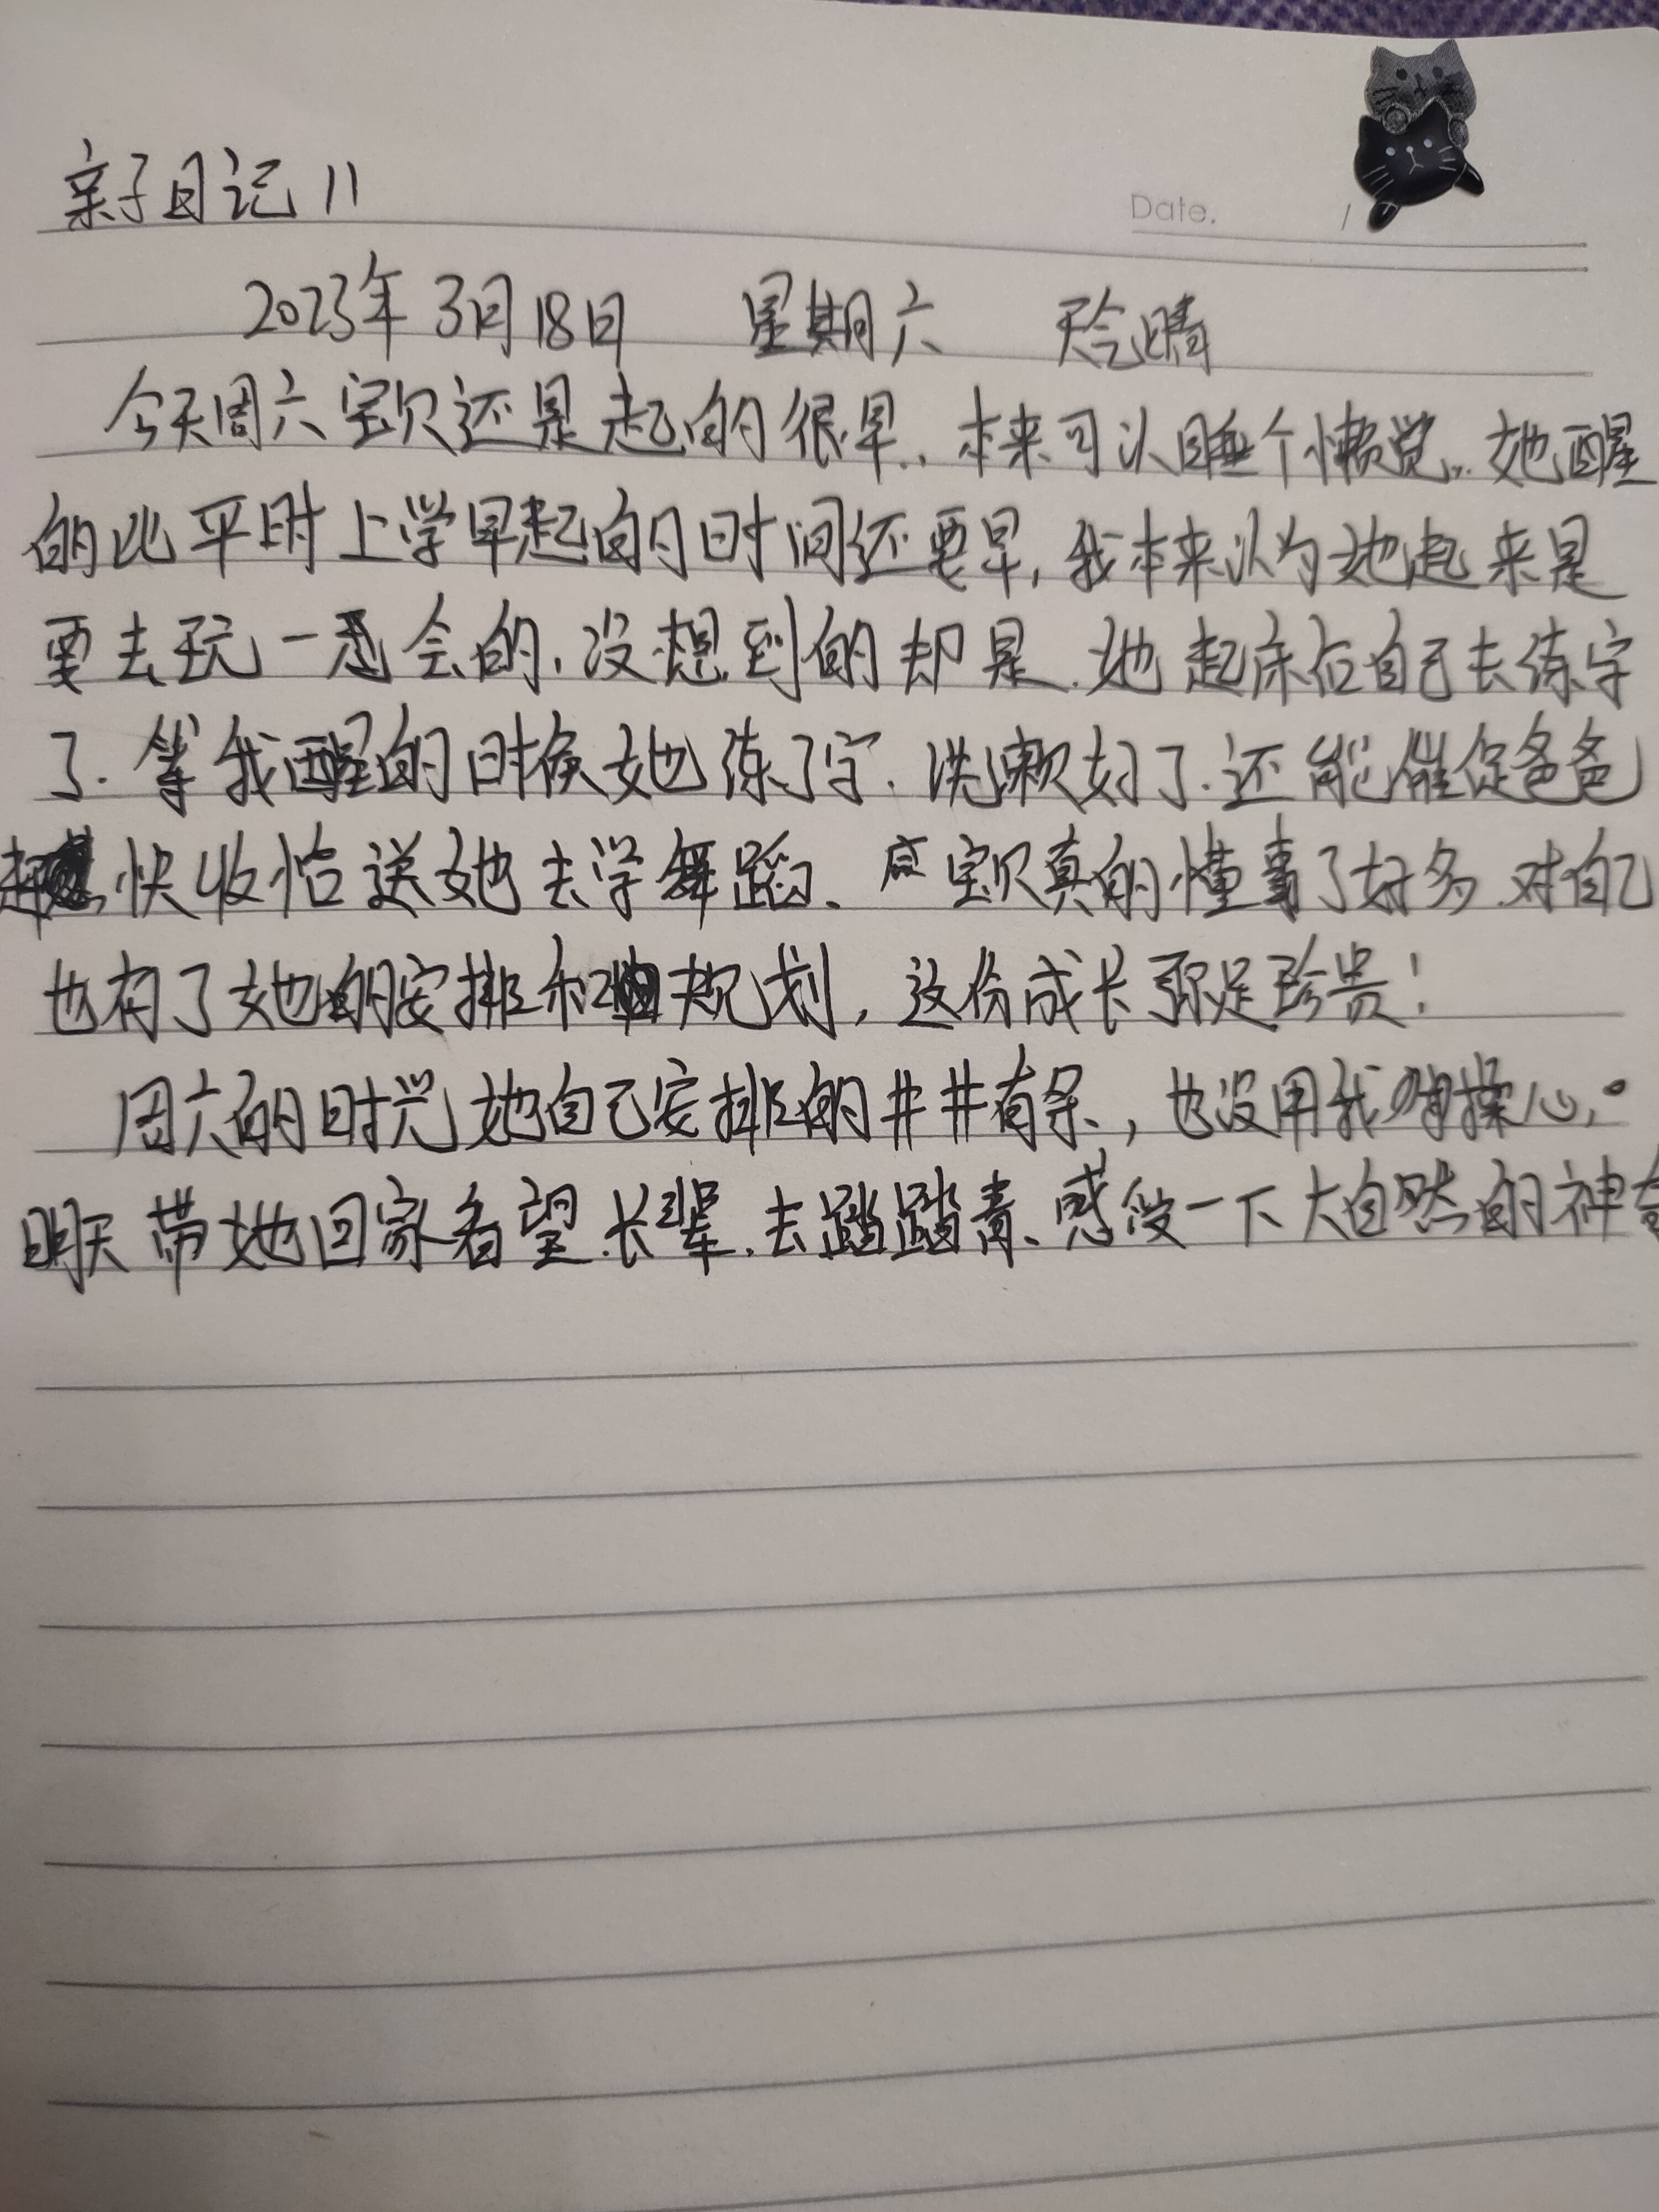 亲子日记 11
Date.
2023年3月18日 星期六 天气晴
今天周六宝贝还是起的很早..本来可以睡个懒觉..她醒
的比平时上学早起的时间还要早,我本来以为她起来是
要去玩一会的.没想到的却是.她起床后自己去练字
了.等我醒的时候她练了字.洗漱好了.还能催促爸爸
快收拾送她去学舞蹈、宝贝真的懂事了好多.对自己
也有了她的安排和规划,这份成长弥足珍贵!
周六的时光她自己安排的井井有条,也没用我操心,
明天带她回家看望长辈.去踏踏青、感受一下大自然的神奇